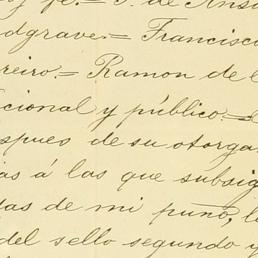 y fé.= J. de Ans
dgrave.= Francisco
reiro.= Ramon de
cional y público.=
spues de su otorga
as á las que subsig
das de mi puño, l
del sello segundo y